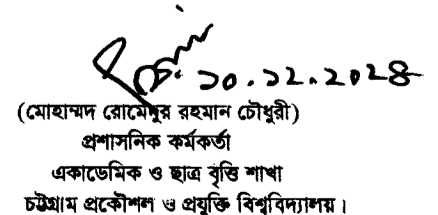 ১০.১২.২০২৪
(মোহাম্মদ রোমেনুর রহমান চৌধুরী)
প্রশাসনিক কর্মকর্তা
একাডেমিক ও ছাত্র বৃত্তি শাখা
চট্টগ্রাম প্রকৌশল ও প্রযুক্তি বিশ্ববিদ্যালয়।